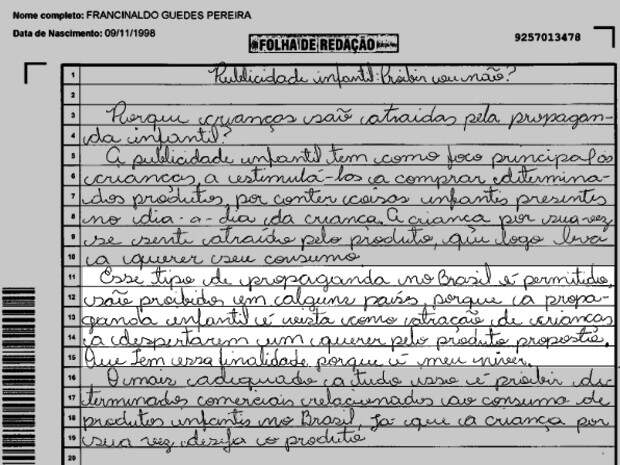 Nome completo: FRANCINALDO GUEDES PEREIRA
Data de Nascimento: 09/11/1998
FOLHA DE REDAÇÃO
9257013478
1 Publicidade infantil: Proibir ou não?
2
3 Porque crianças são atraidas pela propagan-
4 da infantil?
5 A publicidade infantil tem como foco principal as
6 crianças, a estimulá-las a comprar determina-
7 dos produtos, por conter coisas infantis presentes
8 no dia-a-dia da criança. A criança por sua vez
9 se sente atraído pelo produto, que logo leva
10 a querer seu consumo
11 Esse tipo de propaganda no Brasil é permitido,
12 são proibidos em alguns país, porque a propa-
13 ganda infantil é vista como atração, de crianças
14 a despertarem um querer pelo produto proposto.
15 Que tem essa finalidade porque é meu niver.
16 O mais adequado a tudo isso é proibir de
17 terminados comerciais relacionados ao consumo de
18 produtos infantis no Brasil, Ja que a criança por
19 sua vez, deseja o produto
20